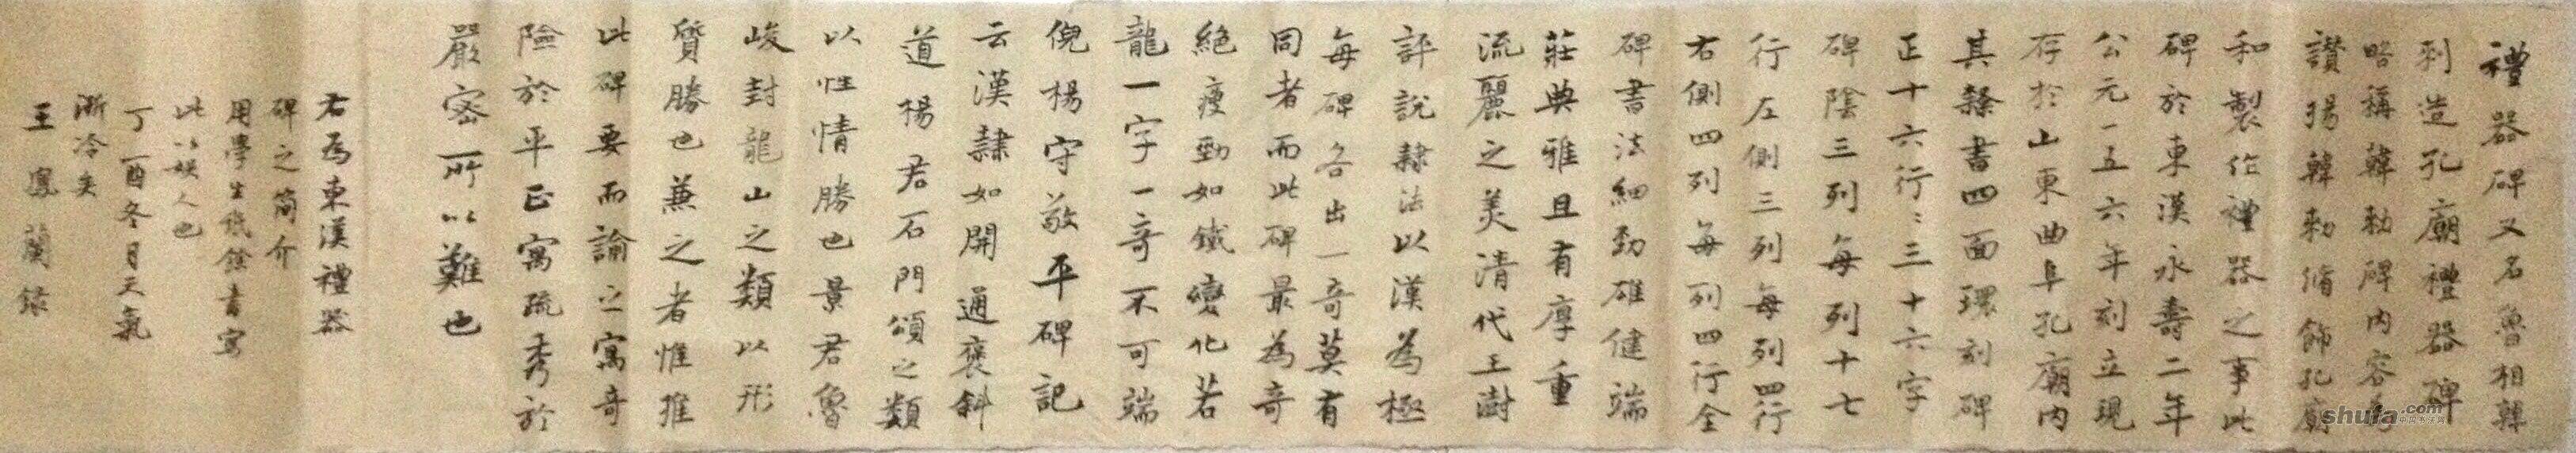 禮器碑又名魯相韓
刺造孔廟禮器碑
略稱韓勅碑內容為
讚揚韓勅脩飾孔廟
和製作禮器之事此
碑於東漢永壽二年
公元一五六年刻立現
存於山東曲阜孔廟內
其隸書四面環刻碑
正十六行〻三十六字
碑陰三列每列十七
行左側三列每列四行
右側四列每列四行全
碑書法細勁雄健端
莊典雅且有厚重
流麗之美清代王澍
評說隸法以漢為極
每碑各出一奇莫有
同者而此碑最為奇
絕瘦勁如鐵變化若
龍一字一奇不可端
倪楊守敬平碑記
云漢隸如開通褒斜
道楊君石門頌之類
以性情勝也景君魯
峻封龍山之類以形
質勝也兼之者惟推
此碑要而論之寓奇
險於平正寓疏秀於
嚴密所以難也
右為東漢禮器
碑之簡介
用學生紙餘書寫
此以娛人也
丁酉冬月天氣
漸冷矣
王鳳蘭錄
shufa.com
中国书法网